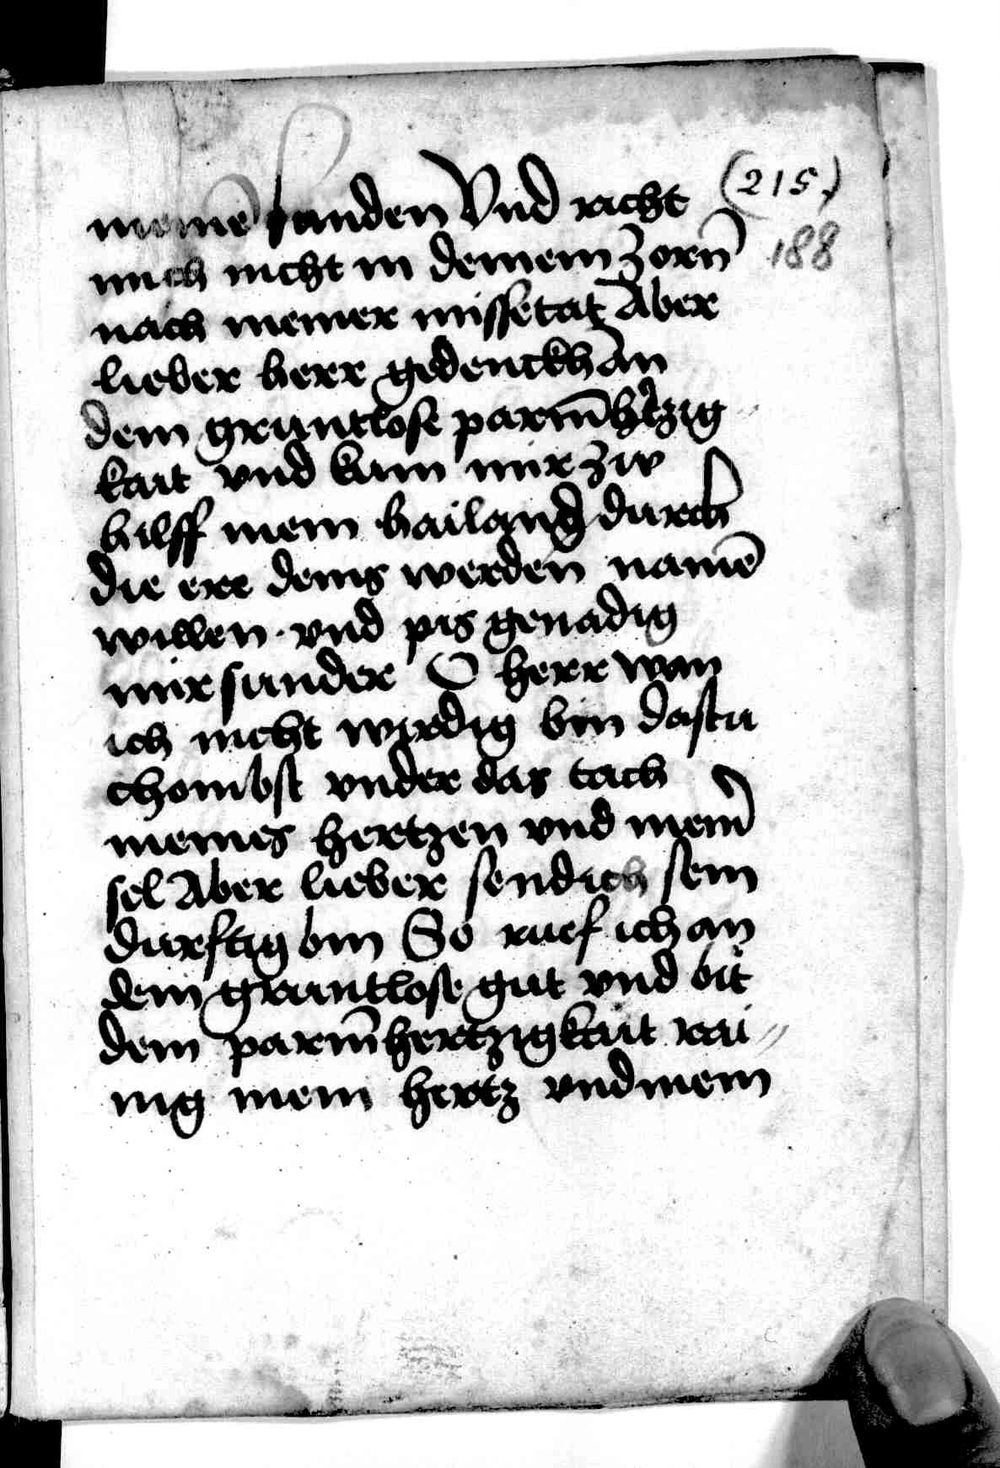 meinē sunden Vnd richt (215.)
mich nicht in deinem zorn̄ 188
nach meiner missetat Aber
lieber herr gedenckh An
dein gruntlose parm̄hꝛtzig
kait vnd kum mir zw
hilff mein hailand durch
die ere deins werden namē
willen . vnd pis genadig
mir sunder O herr wan
ich nicht wirdig bin dastu
chombst vnder das tach
meines hertzen vnd mein̄
sel Aber lieber send ich sein
durftig bin So ruef ich an
dein gruntlose gut vnd bit
dein parm̄hertzigkait rai //
nig mein hertz vnd mein